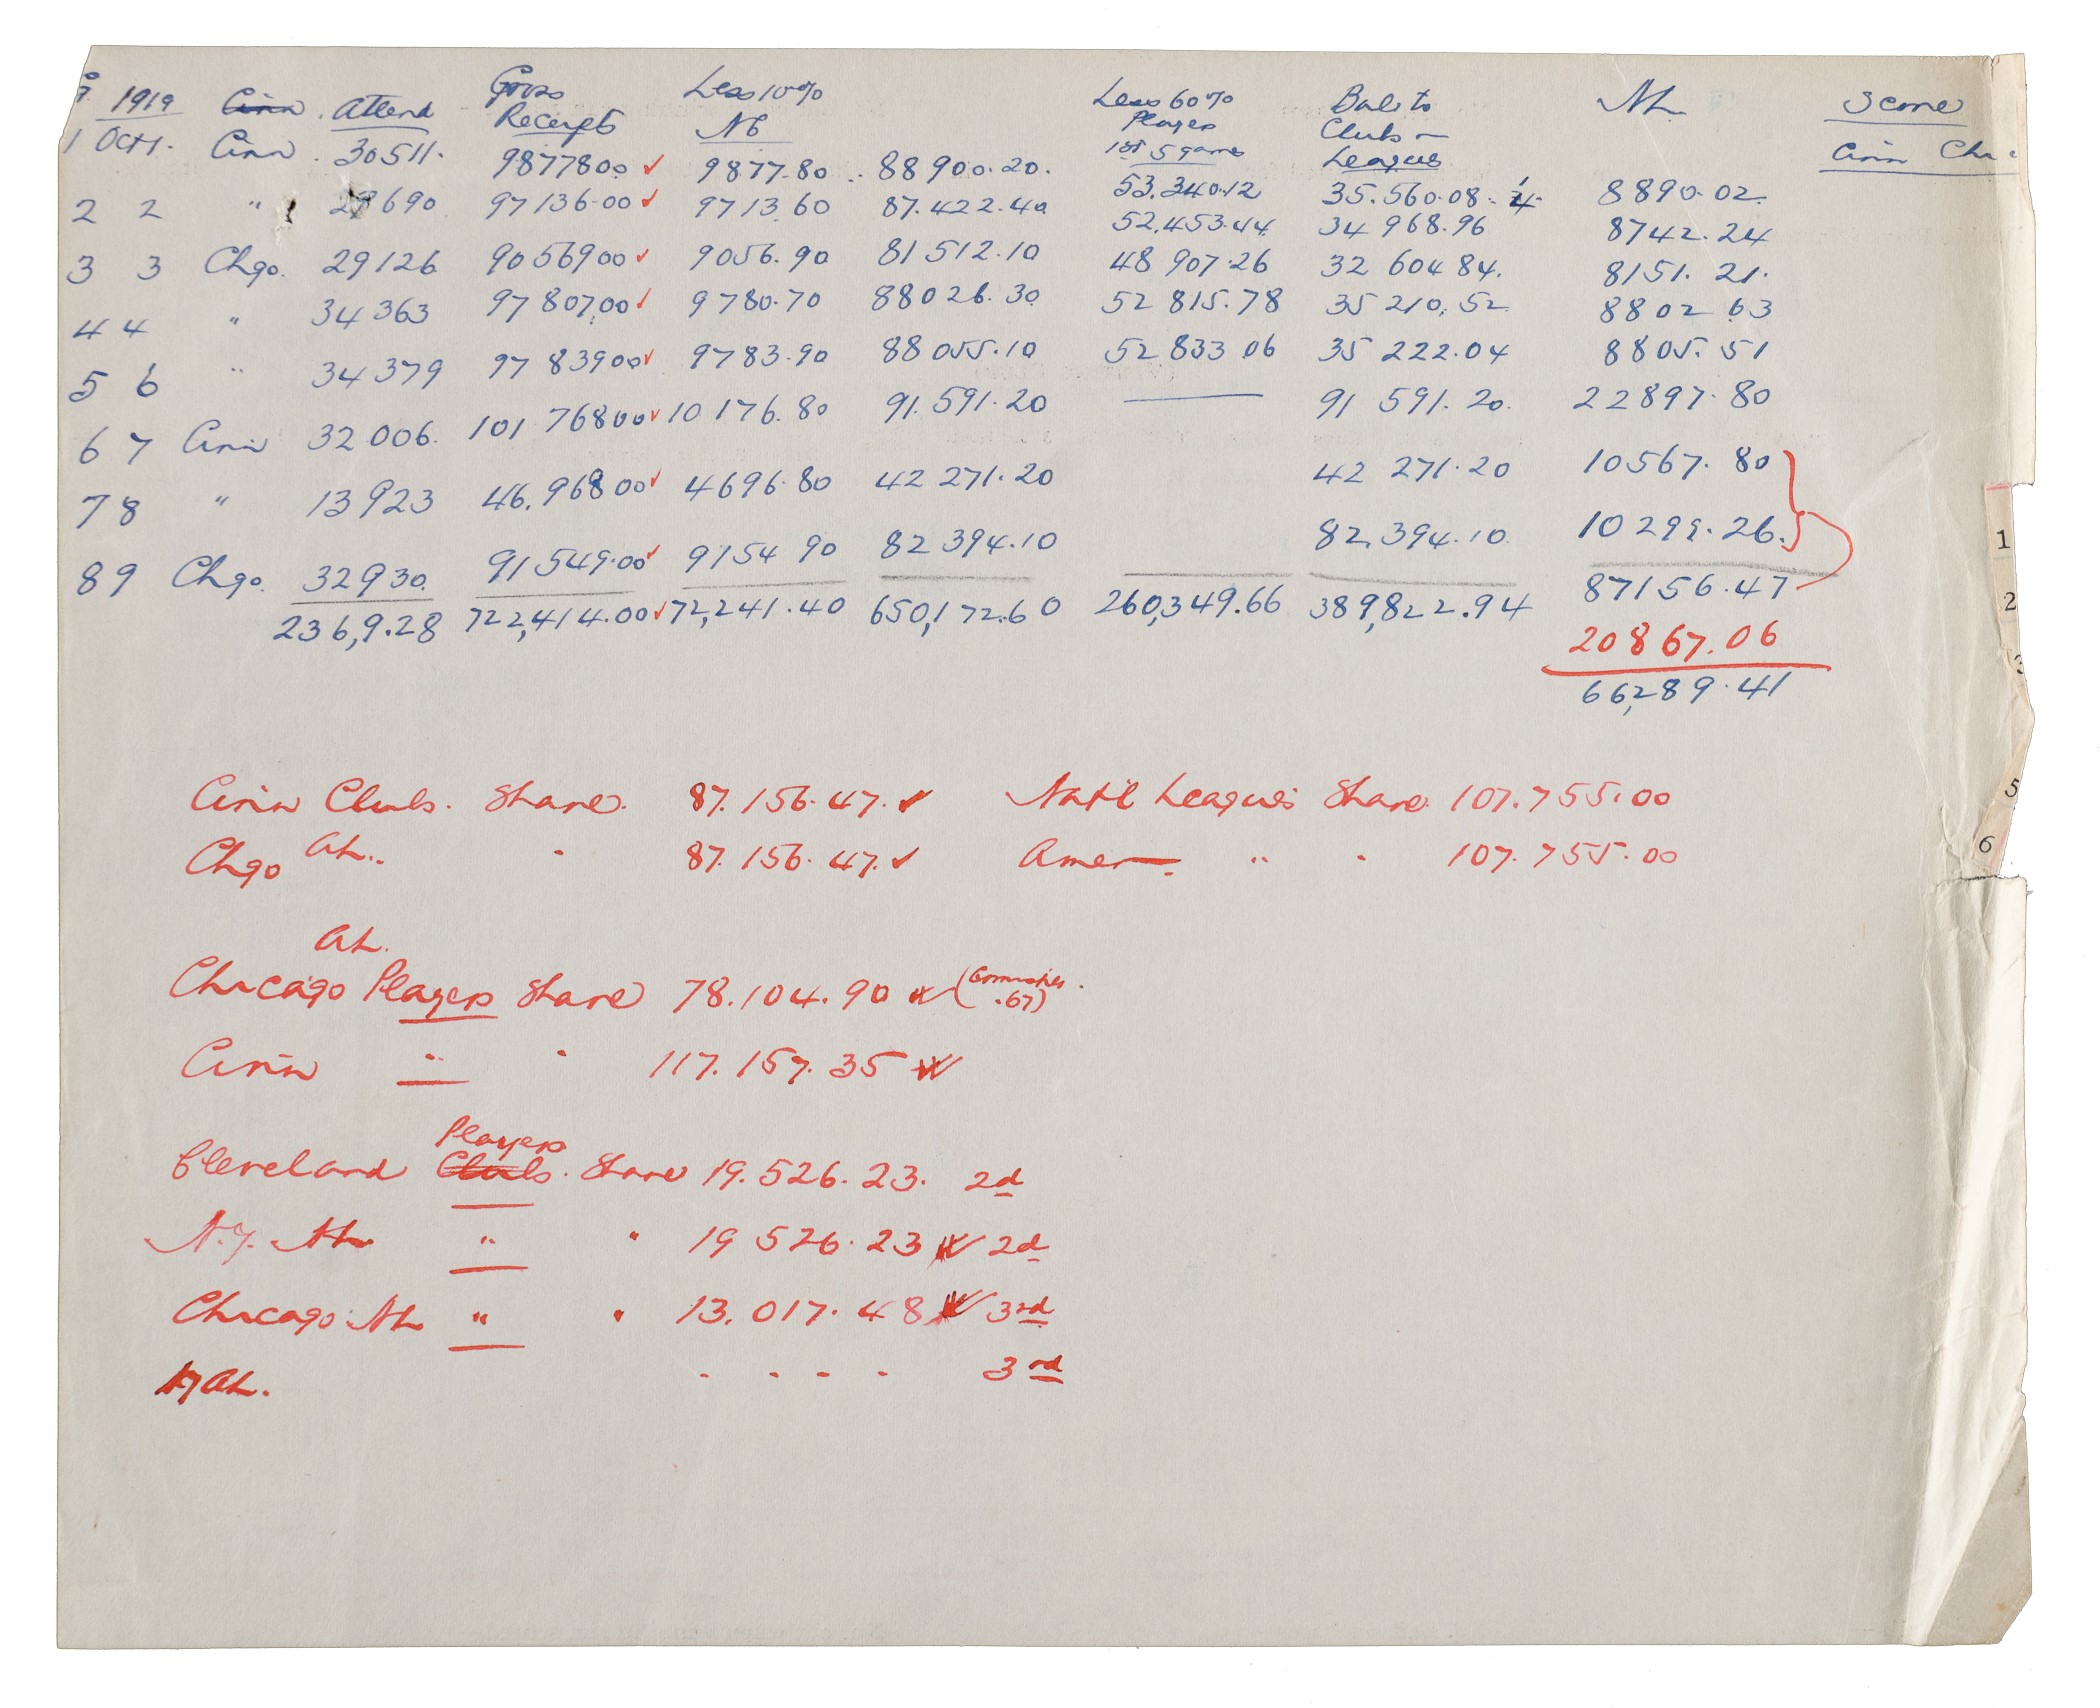 G 1919 Cinn Attend Gross Receipts Less 10% NC Less 60% Players 1st 5 games Bal to Clubs - Leagues NL Score Cinn Chi
1 Oct 1. Cinn. 30511. 9877800 ✓ 9877.80 88900.20. 53.340.12 35.560.08. 1/4. 8890.02.
2 2 " 29690 97136.00 ✓ 9713.60 87.422.40 52.453.44 34968.96 8742.24
3 3 Chgo. 29126 9056900 ✓ 9056.90 81512.10 48907.26 32 60484. 8151.21.
4 4 " 34363 9780700 ✓ 9780.70 88026.30 52815.78 35210.52 8802 63
5 6 " 34379 97 83900 ✓ 9783.90 88055.10 52833 06 35222.04 8805.51
6 7 Cinn 32006. 101 76800 ✓ 10176.80 91.591.20 — 91 591.20. 22897.80
7 8 " 13923 46.96800 ✓ 4696.80 42271.20 42 271.20 10567.80
8 9 Chgo. 32930. 91549.00 ✓ 9154 90 82394.10 82.394.10. 10299.26.
236,9.28 722,414.00 ✓ 72,241.40 650,172.60 260,349.66 389,822.94 87156.47
20867.06
66,289.41
Cinn Clubs. Share. 87.156.47. ✓ Nat'l Leagues Share. 107.755.00
Chgo AL.. " 87.156.47. ✓ Amer — " " 107.755.00
AL.
Chicago Players Share 78.104.90 ✓
.67)
Cinn " " 117.157.35 ✓
Players
Cleveland Clubs. Share 19.526.23. 2d
N.Y. NL " " 19 526.23 ✓ 2d
Chicago NL " " 13.017.48 ✓ 3rd
NY AL. . . . . 3rd
1
2
3
5
6